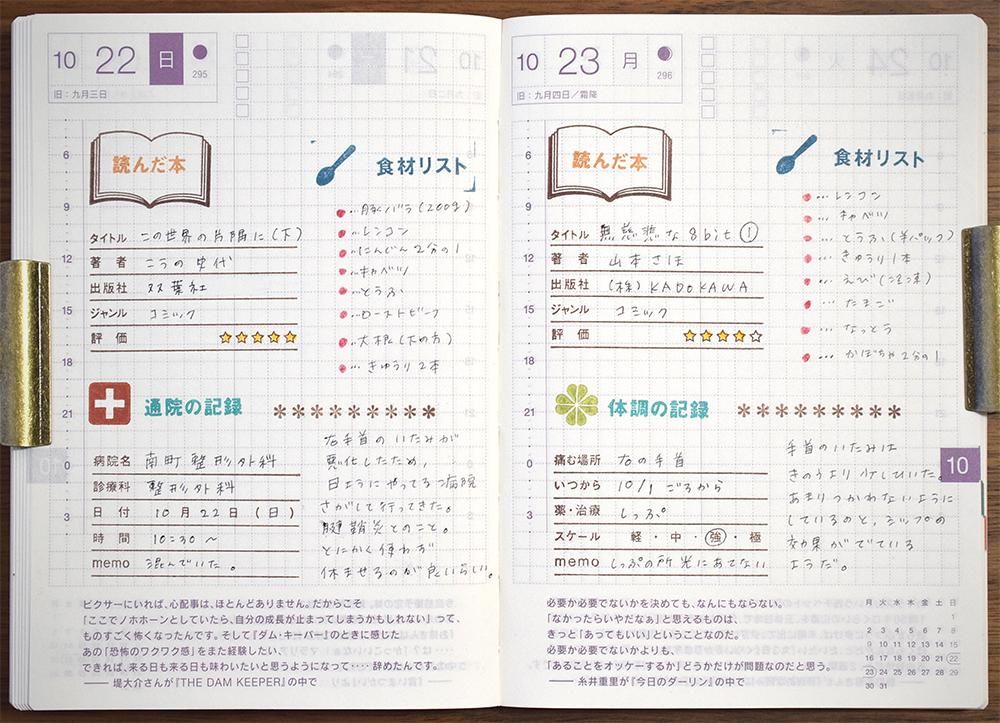 10 22 日
295
旧：九月三日
6
9
12
15
18
21
0
3
読んだ本
タイトル この世界の片隅に（下）
著者 こうの史代
出版社 双葉社
ジャンル コミック
評価 ★★★★★
食材リスト
…豚バラ（200g）
…レンコン
…にんじん2分の1
…キャベツ
…とうふ
…ローストビーフ
…大根（下の方）
…きゅうり2本
通院の記録 *********
病院名 南町整形外科
診療科 整形外科
日付 10月22日（日）
時間 10:30～
memo 混んでいた。
右手首のいたみが
悪化したため、
日ようにやってる病院
さがして行ってきた。
腱鞘炎とのこと。
とにかく使わず
休ませるのが良いらしい。
ピクサーにいれば、心配事は、ほとんどありません。だからこそ
「ここでノホホーンとしていたら、自分の成長が止まってしまうかもしれない」って、
ものすごく怖くなったんです。そして『ダム・キーパー』のときに感じた
あの「恐怖のワクワク感」をまた経験したい、
できれば、来る日も来る日も味わいたいと思うようになって‥‥辞めたんです。
――堤大介さんが『THE DAM KEEPER』の中で
10 23 月
296
旧：九月四日／霜降
6
9
12
15
18
21
0
3
読んだ本
タイトル 無慈悲な8bit ①
著者 山本さほ
出版社 （株）KADOKAWA
ジャンル コミック
評価 ★★★★☆
食材リスト
…レンコン
…キャベツ
…とうふ（半パック）
…きゅうり1本
…えび
…たまご
…なっとう
…かぼちゃ2分の1
体調の記録 *********
痛む場所 右の手首
いつから 10/1ごろから
薬・治療 しっぷ
スケール 軽・中・強・極
memo しっぷの所光にあてない
手首のいたみは
きのうより少しひいた。
あまりつかわないように
しているのと、シップの
効果がでている
ようだ。
10
必要か必要でないかを決めても、なんにもならない。
「なかったらいやだなぁ」と思えるものは、
きっと「あってもいい」ということなのだ。
必要か必要でないかよりも、
「あることをオッケーするか」どうかだけが問題なのだと思う。
――糸井重里が『今日のダーリン』の中で
月 火 水 木 金 土 日
1
2 3 4 5 6 7 8
9 10 11 12 13 14 15
16 17 18 19 20 21 22
23 24 25 26 27 28 29
30 31